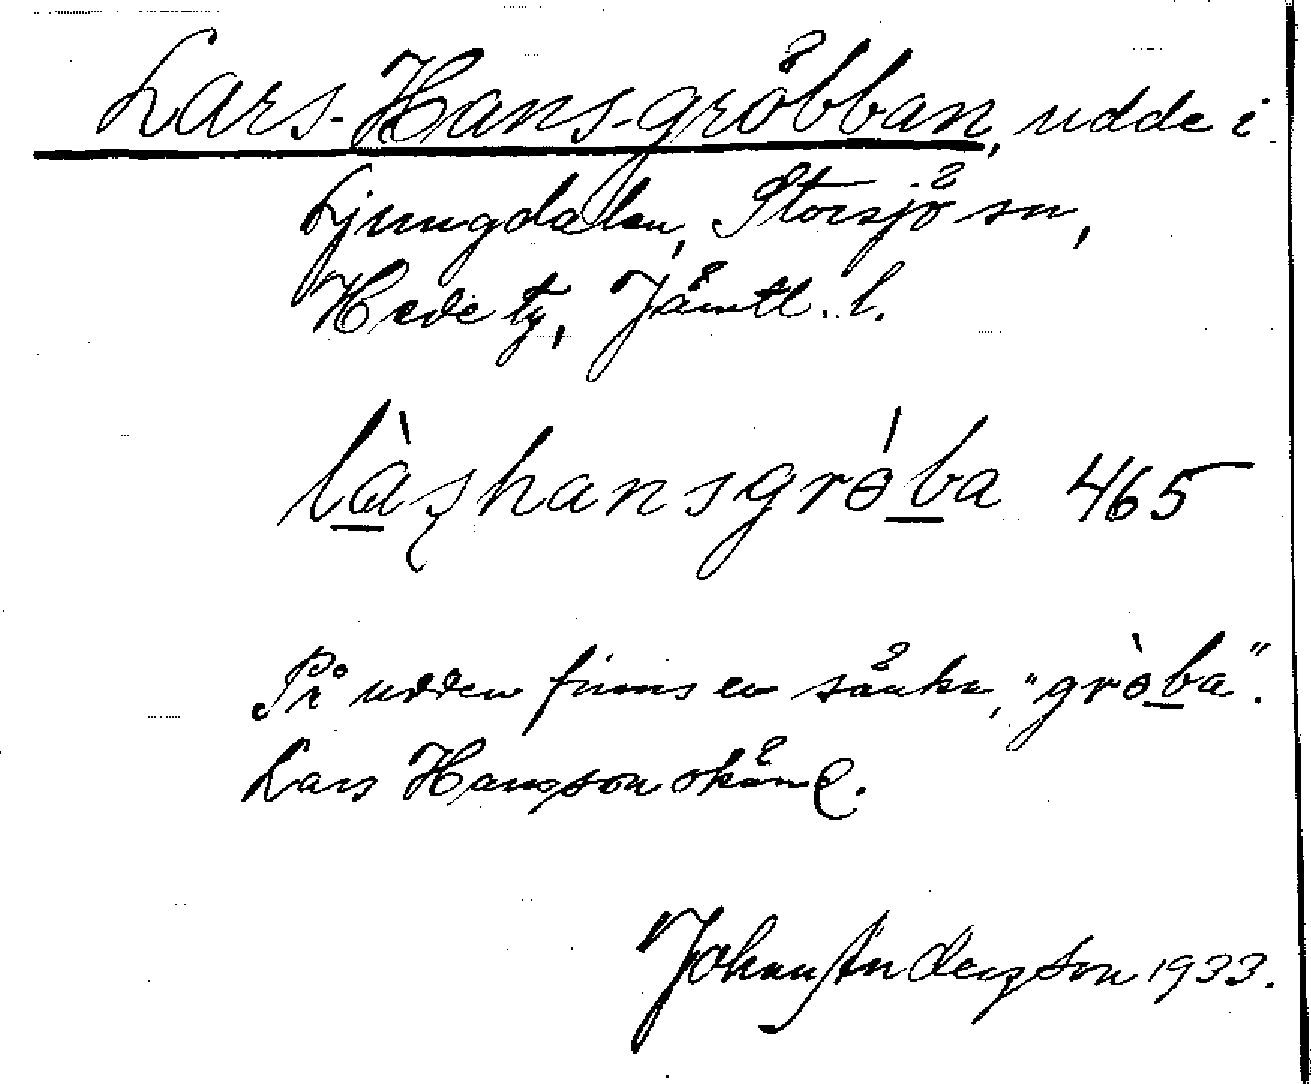 Lars-Hans-gröbban, udde i
Ljungdalen, Storsjö sn,
Hede tg, Jämtl. l.
làʂhansgrò̀ba 465
På udden finns en sänka, "gròba".
Lars Hansson okänd.
Johan Anderzson 1933.